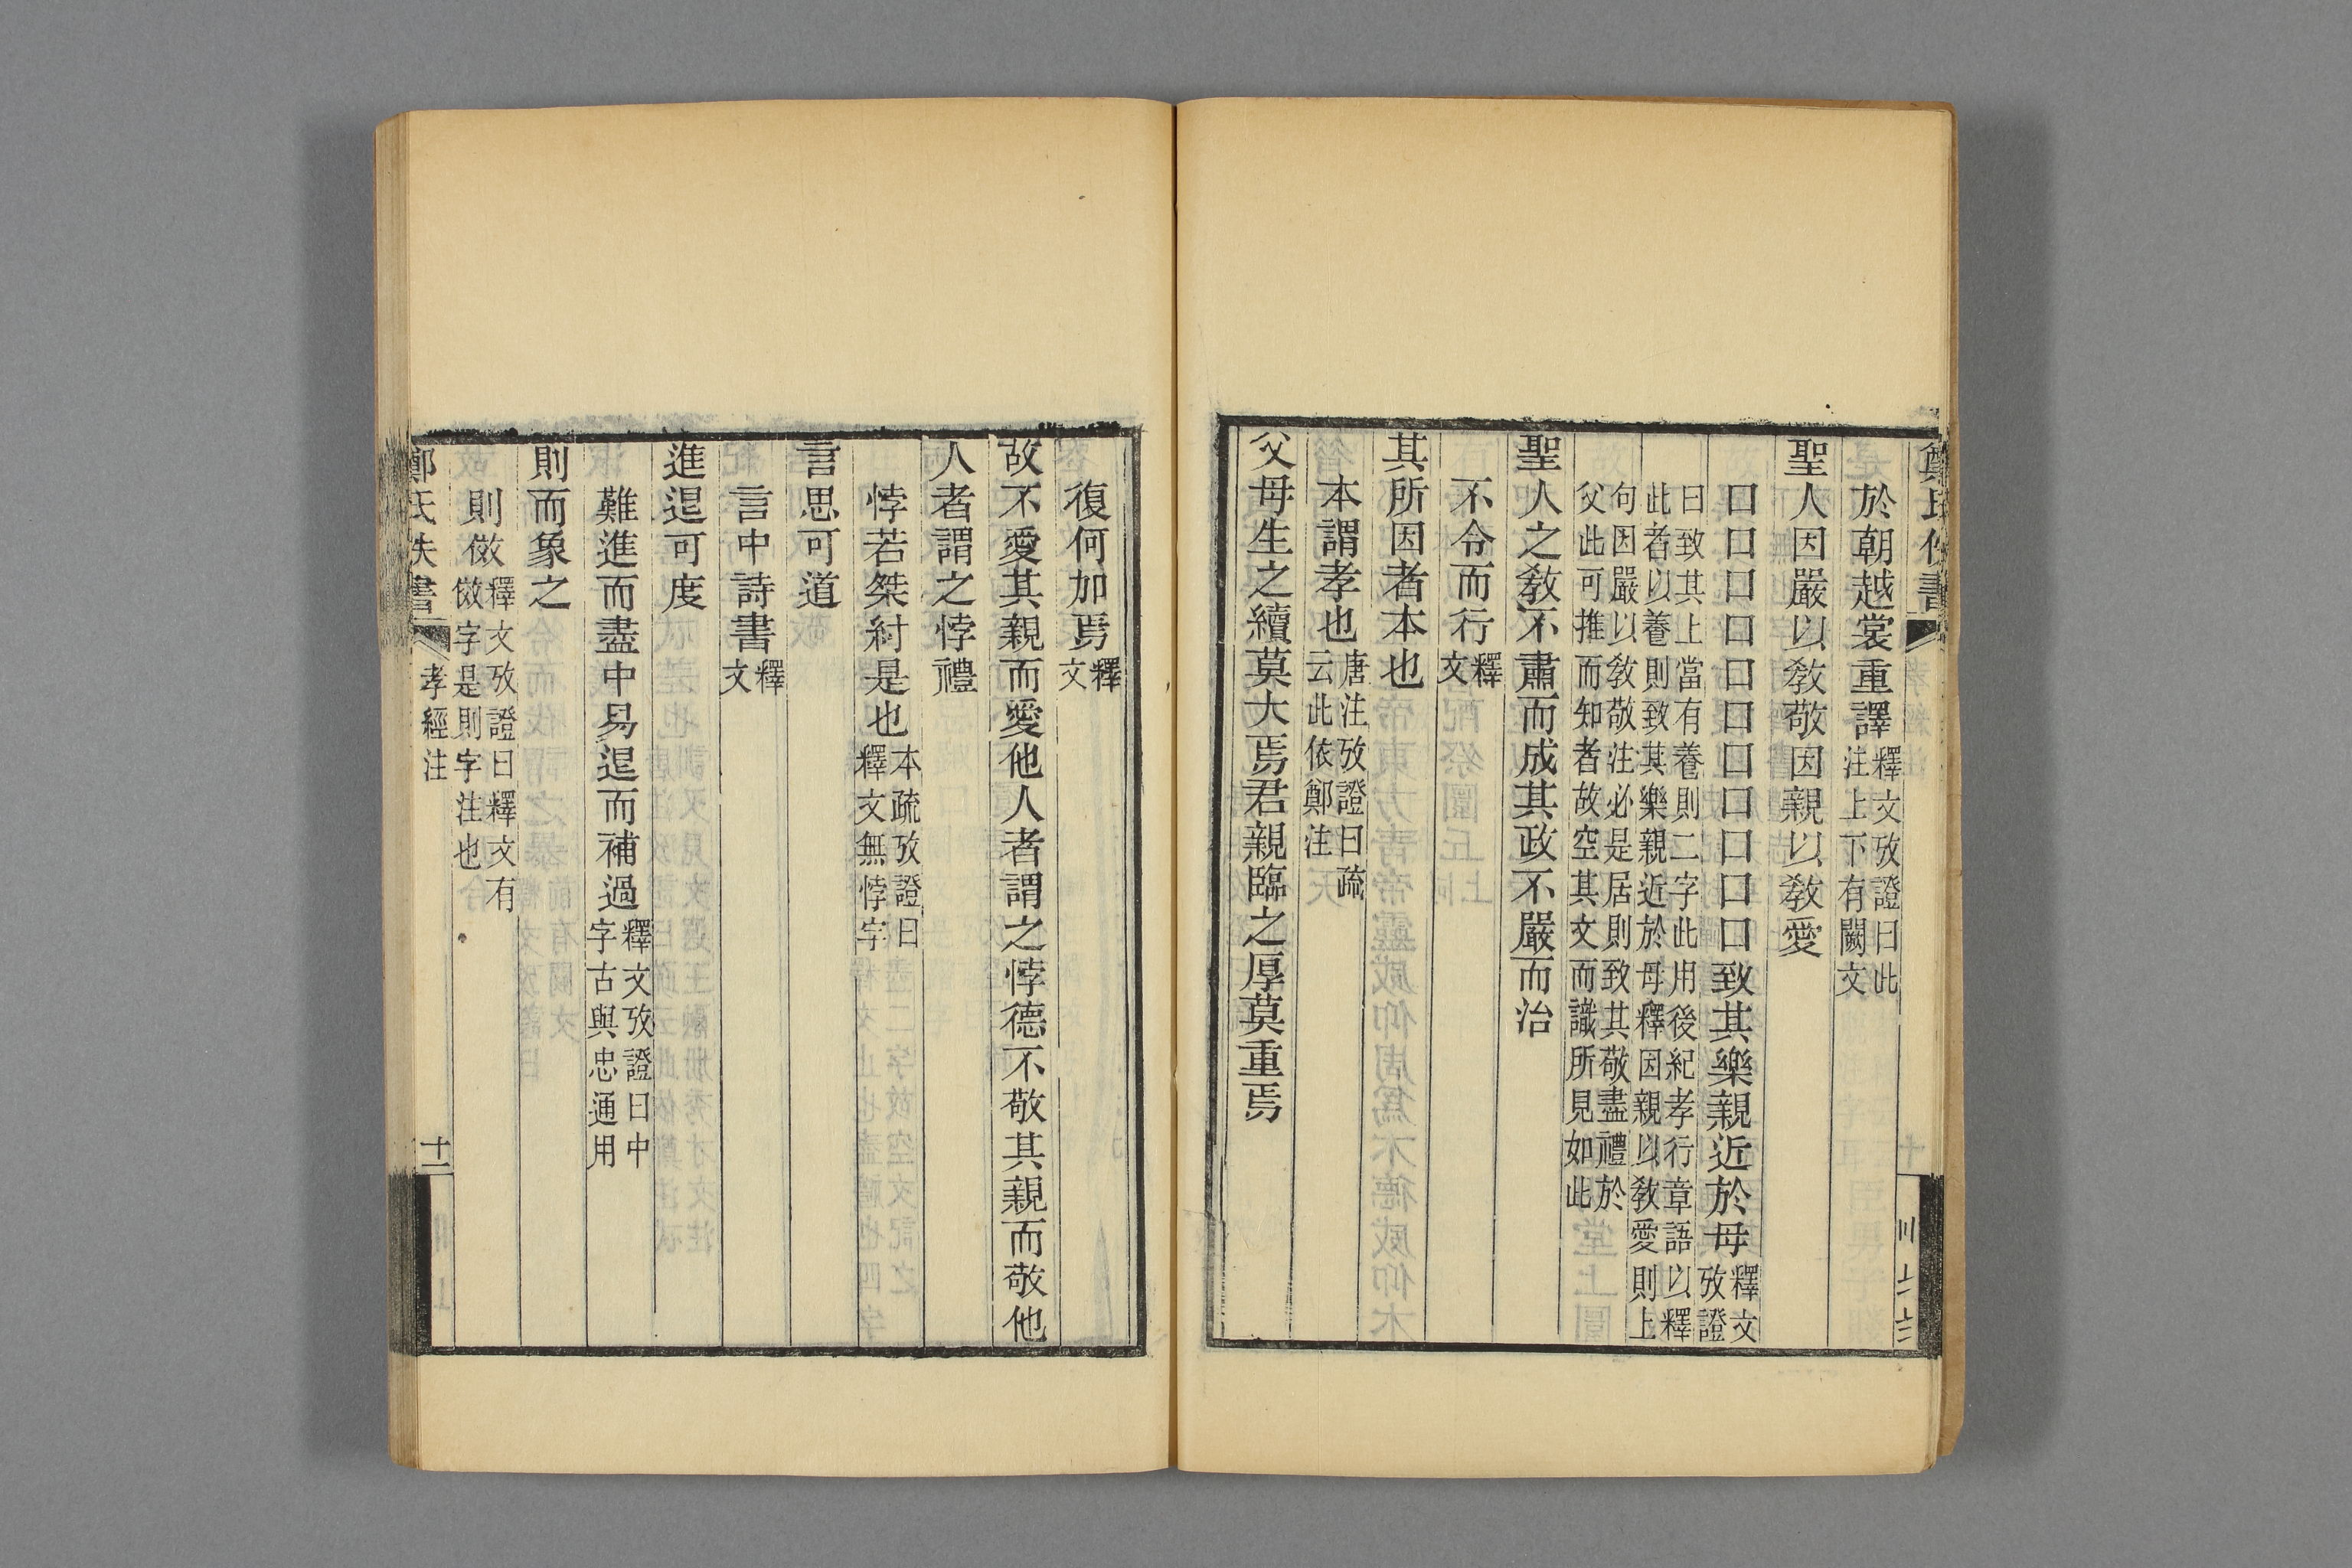 於朝越裳重譯釋文攷證曰此注上下有闕文
聖人因嚴以敎敬因親以敎愛
口口口口口口口口口口口致其樂親近於母釋文攷證
曰致其上當有養則二字此用後紀孝行章語以釋
此者以養則致其樂親近於母釋因親以敎愛則上
句因嚴以敎敬注必是居則致其敬盡禮於
父此可推而知者故空其文而識所見如此
聖人之敎不肅而成其政不嚴而治
不令而行釋文
其所因者本也
本謂孝也唐注攷證曰疏云此依鄭注
父母生之續莫大焉君親臨之厚莫重焉
復何加焉釋文
故不愛其親而愛他人者謂之悖德不敬其親而敬他
人者謂之悖禮
悖若桀紂是也本疏攷證曰釋文無悖字
言思可道
言中詩書釋文
進退可度
難進而盡中易退而補過釋文攷證曰中字古與忠通用
則而象之
則傚釋文攷證曰釋文有傚字是則字注也
鄭氏佚書
孝經注
十二